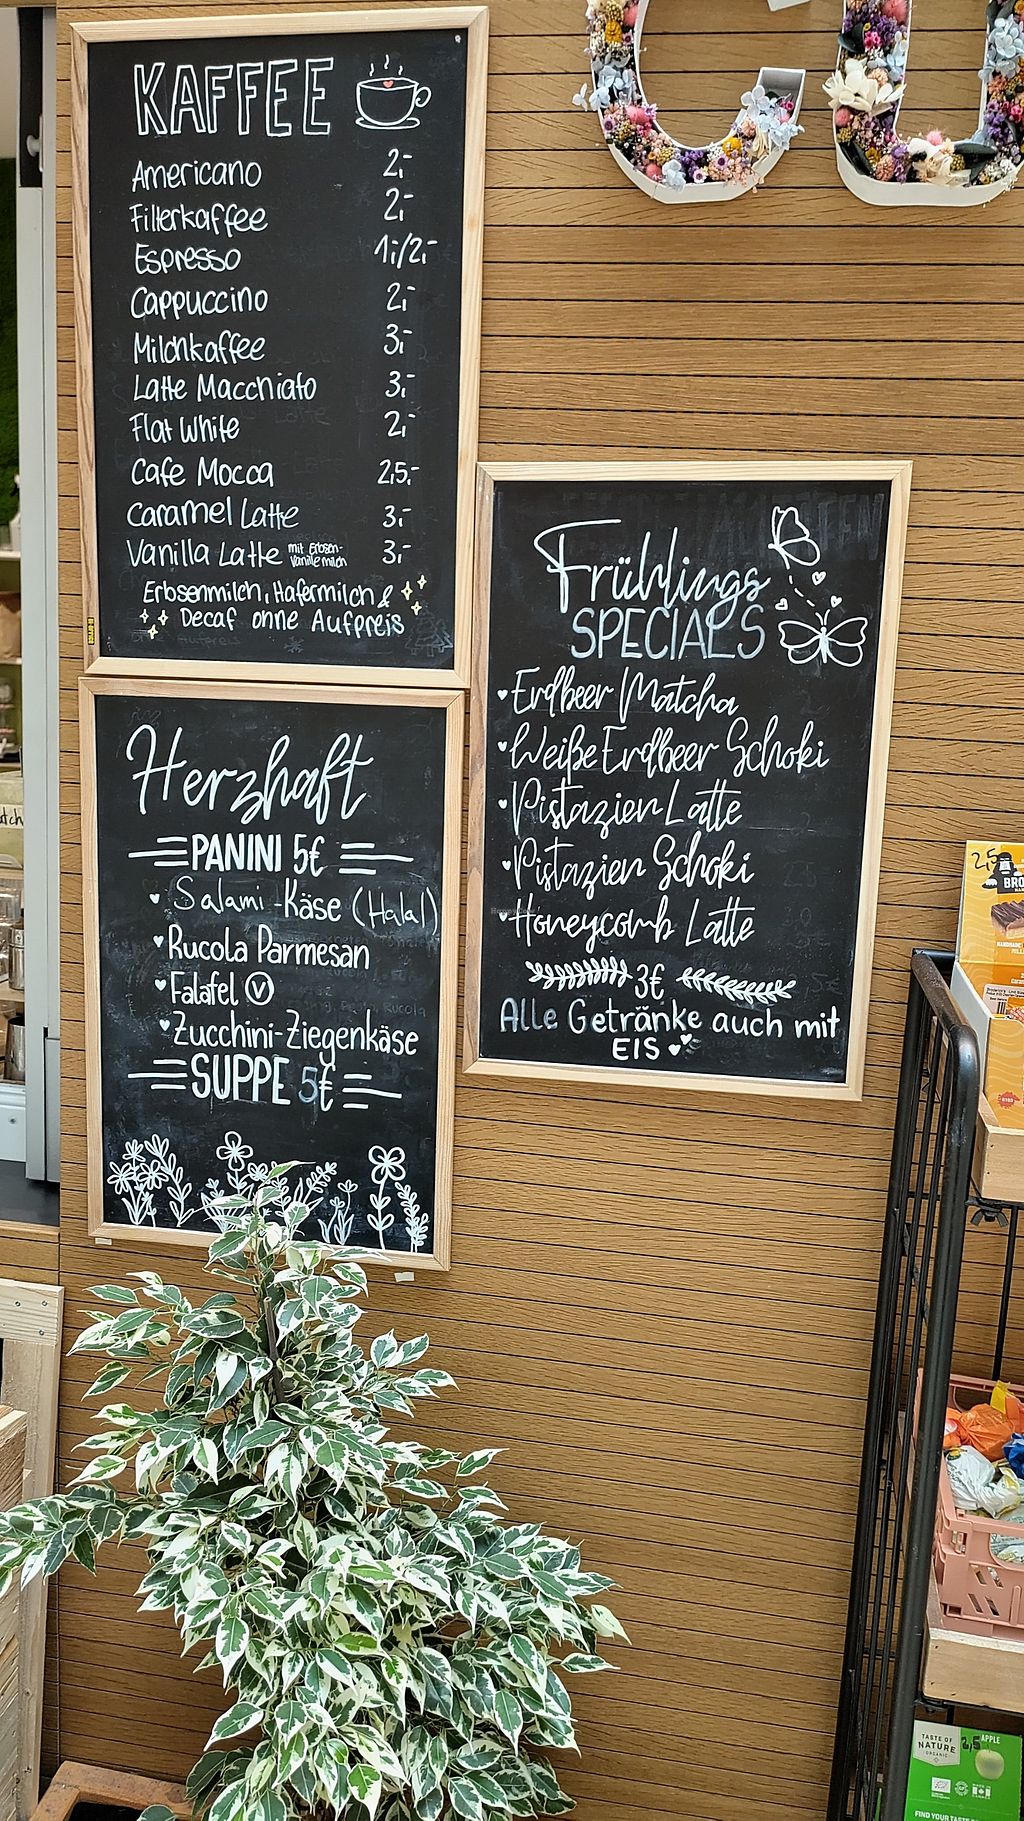 CU
KAFFEE
Americano 2,-
Filterkaffee 2,-
Espresso 1,-/2,-
Cappuccino 2,-
Milchkaffee 3,-
Latte Macchiato 3,-
Flat White 2,-
Cafe Mocca 2,5,-
Caramel Latte 3,-
Vanilla Latte mit Erbsen-Vanillemilch 3,-
Erbsenmilch, Hafermilch &
Decaf ohne Aufpreis
Herzhaft
PANINI 5€
Salami-Käse (Halal)
Rucola Parmesan
Falafel V
Zucchini-Ziegenkäse
SUPPE 5€
Frühlings
SPECIALS
Erdbeer Matcha
Weiße Erdbeer Schoki
Pistazien Latte
Pistazien Schoki
Honeycomb Latte
3€
Alle Getränke auch mit
EIS
2,5
BRO
TASTE OF
NATURE
ORGANIC
2,5
APPLE
FIND YOUR TASTE OF